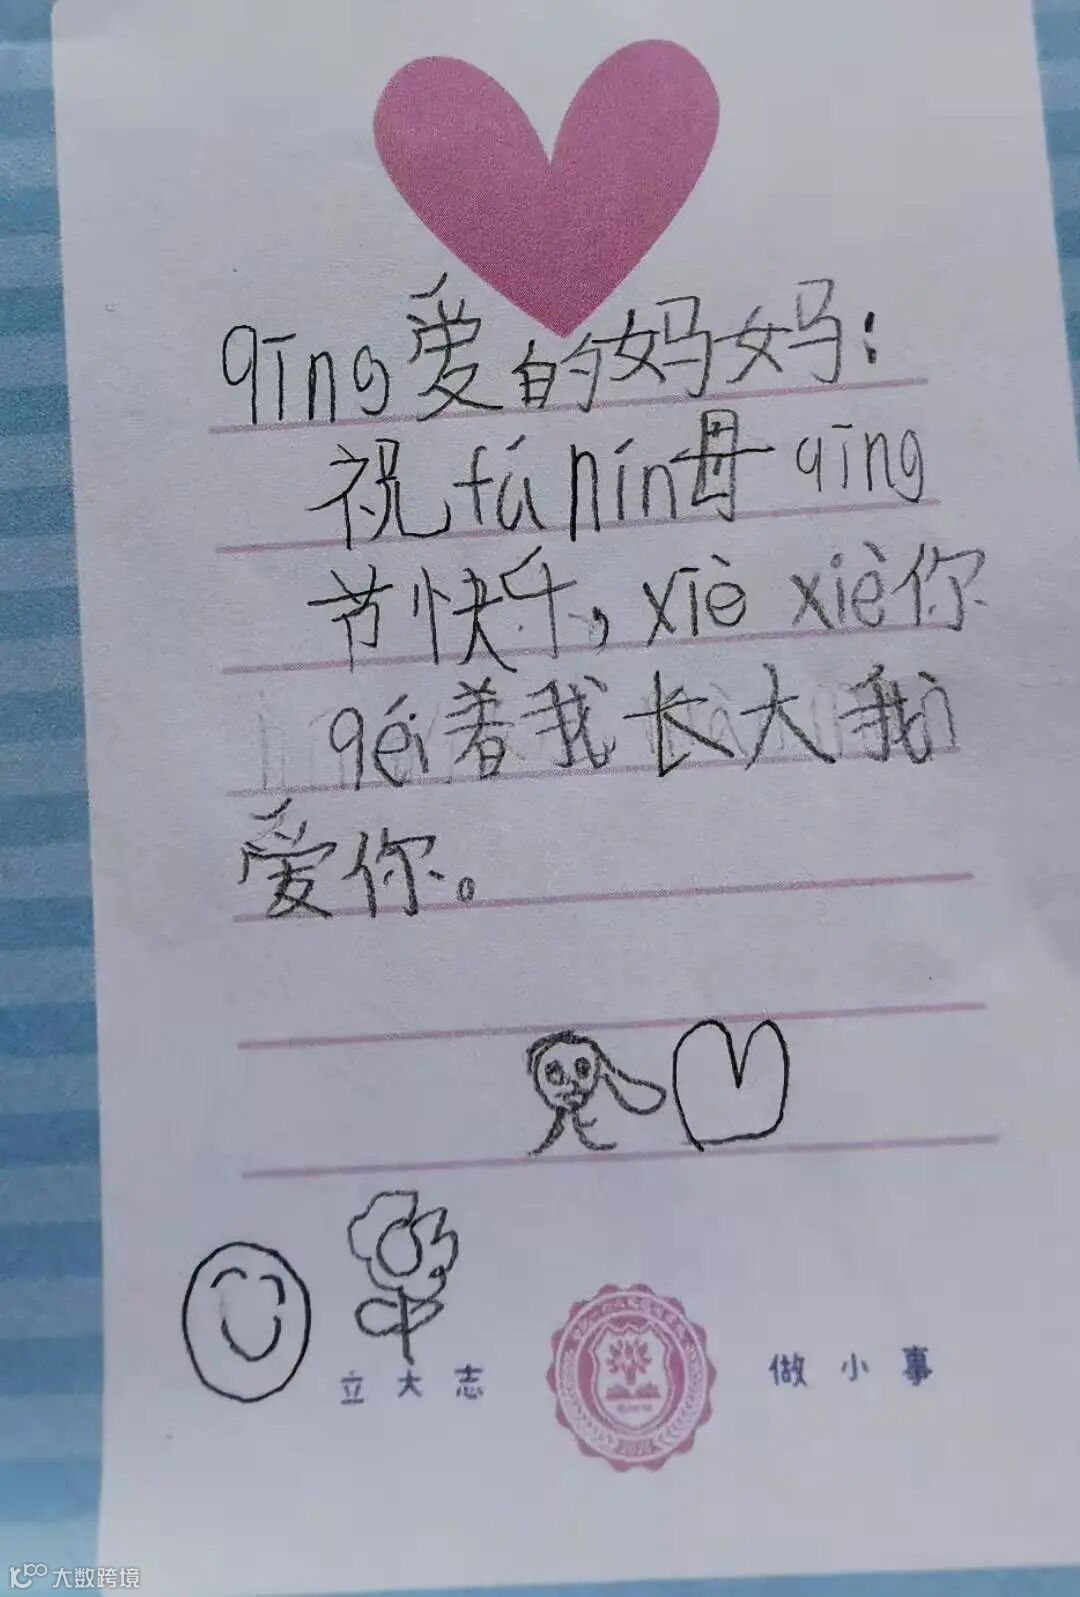 qīng爱的妈妈：
祝fú nín母qīng
节快乐，xiè xiè你
péi着我长大我
爱你。
立大志
做小事
大数跨境